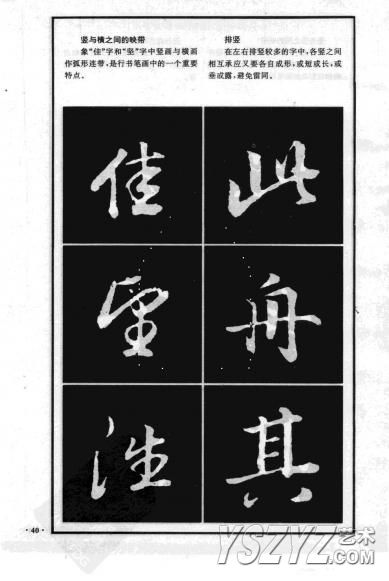 竖与横之间的映带
象“佳”字和“坚”字中竖画与横画
作弧形连带，是行书笔画中的一个重要
特点。
排竖
在左右排竖较多的字中，各竖之间
相互承应又要各自成形，或短或长，或
垂或露，避免雷同。
佳
此
舟
其
·40·
YSZYZ艺术
.COM